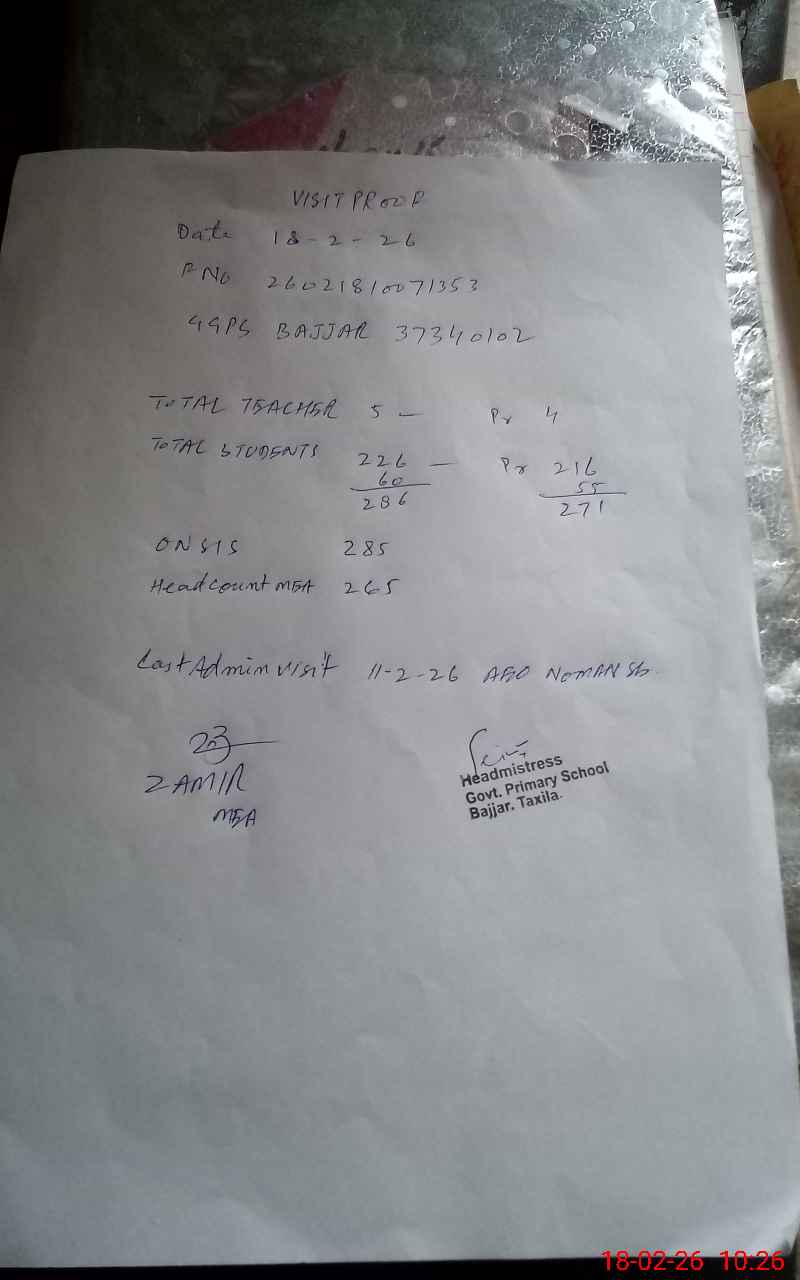 VISIT PROOF
Date 18-2-26
PNo 26021810071353
GGPS BAJJAR 37340102
TOTAL TEACHER 5 — Pr 4
TOTAL STUDENTS 226 — Pr 216
60 55
286 271
ON SIS 285
Headcount MEA 265
Last Admin visit 11-2-26 AEO NOMAN Sb.
ZAMIR
MEA
Headmistress
Govt. Primary School
Bajjar. Taxila.
18-02-26 10:26